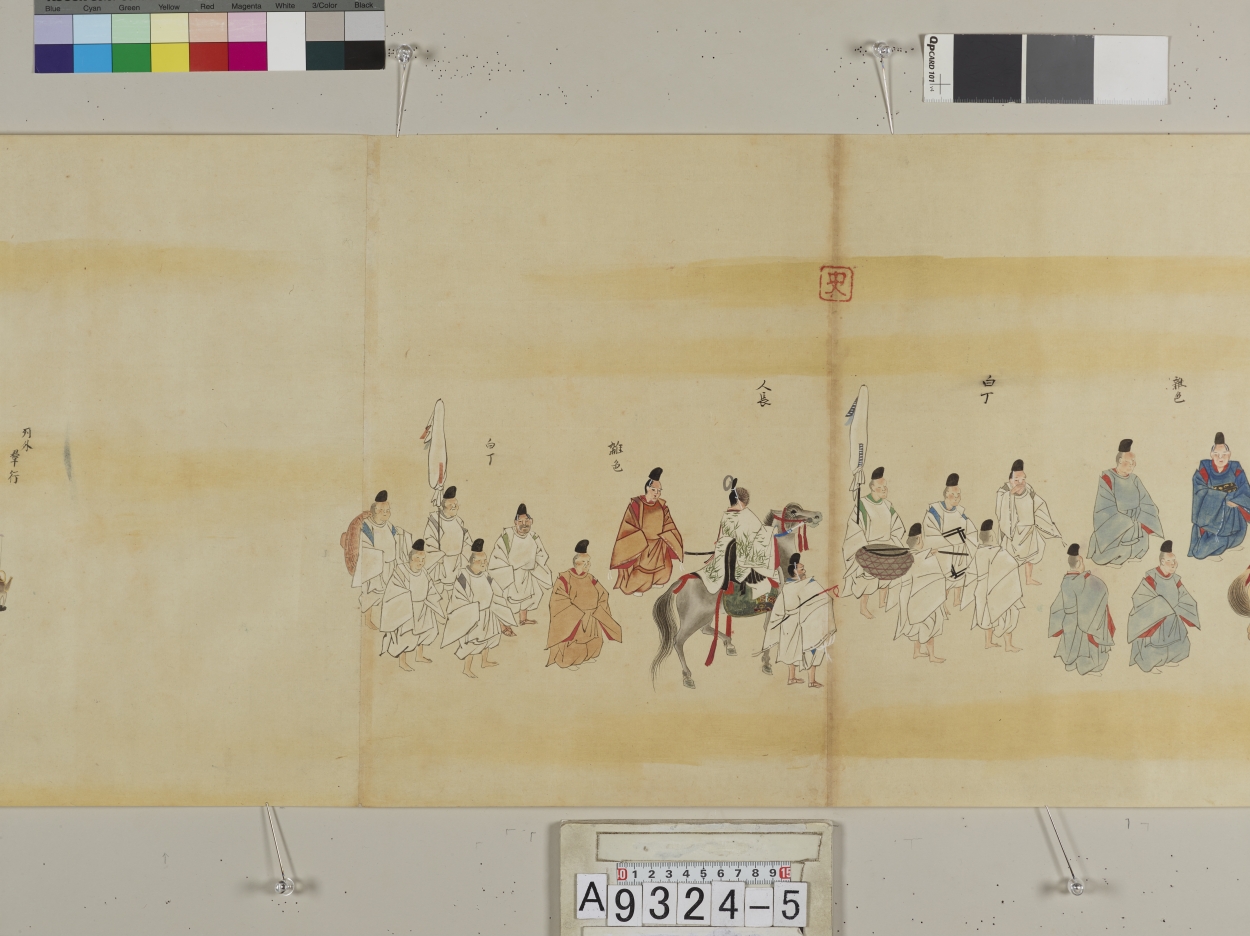 Blue Cyan Green Yellow Red Magenta White 3/Color Black
QPCARD 101
史
雜色
白丁
人長
雜色
白丁
列外
隼行
0 1 2 3 4 5 6 7 8 9 15
A 9324-5